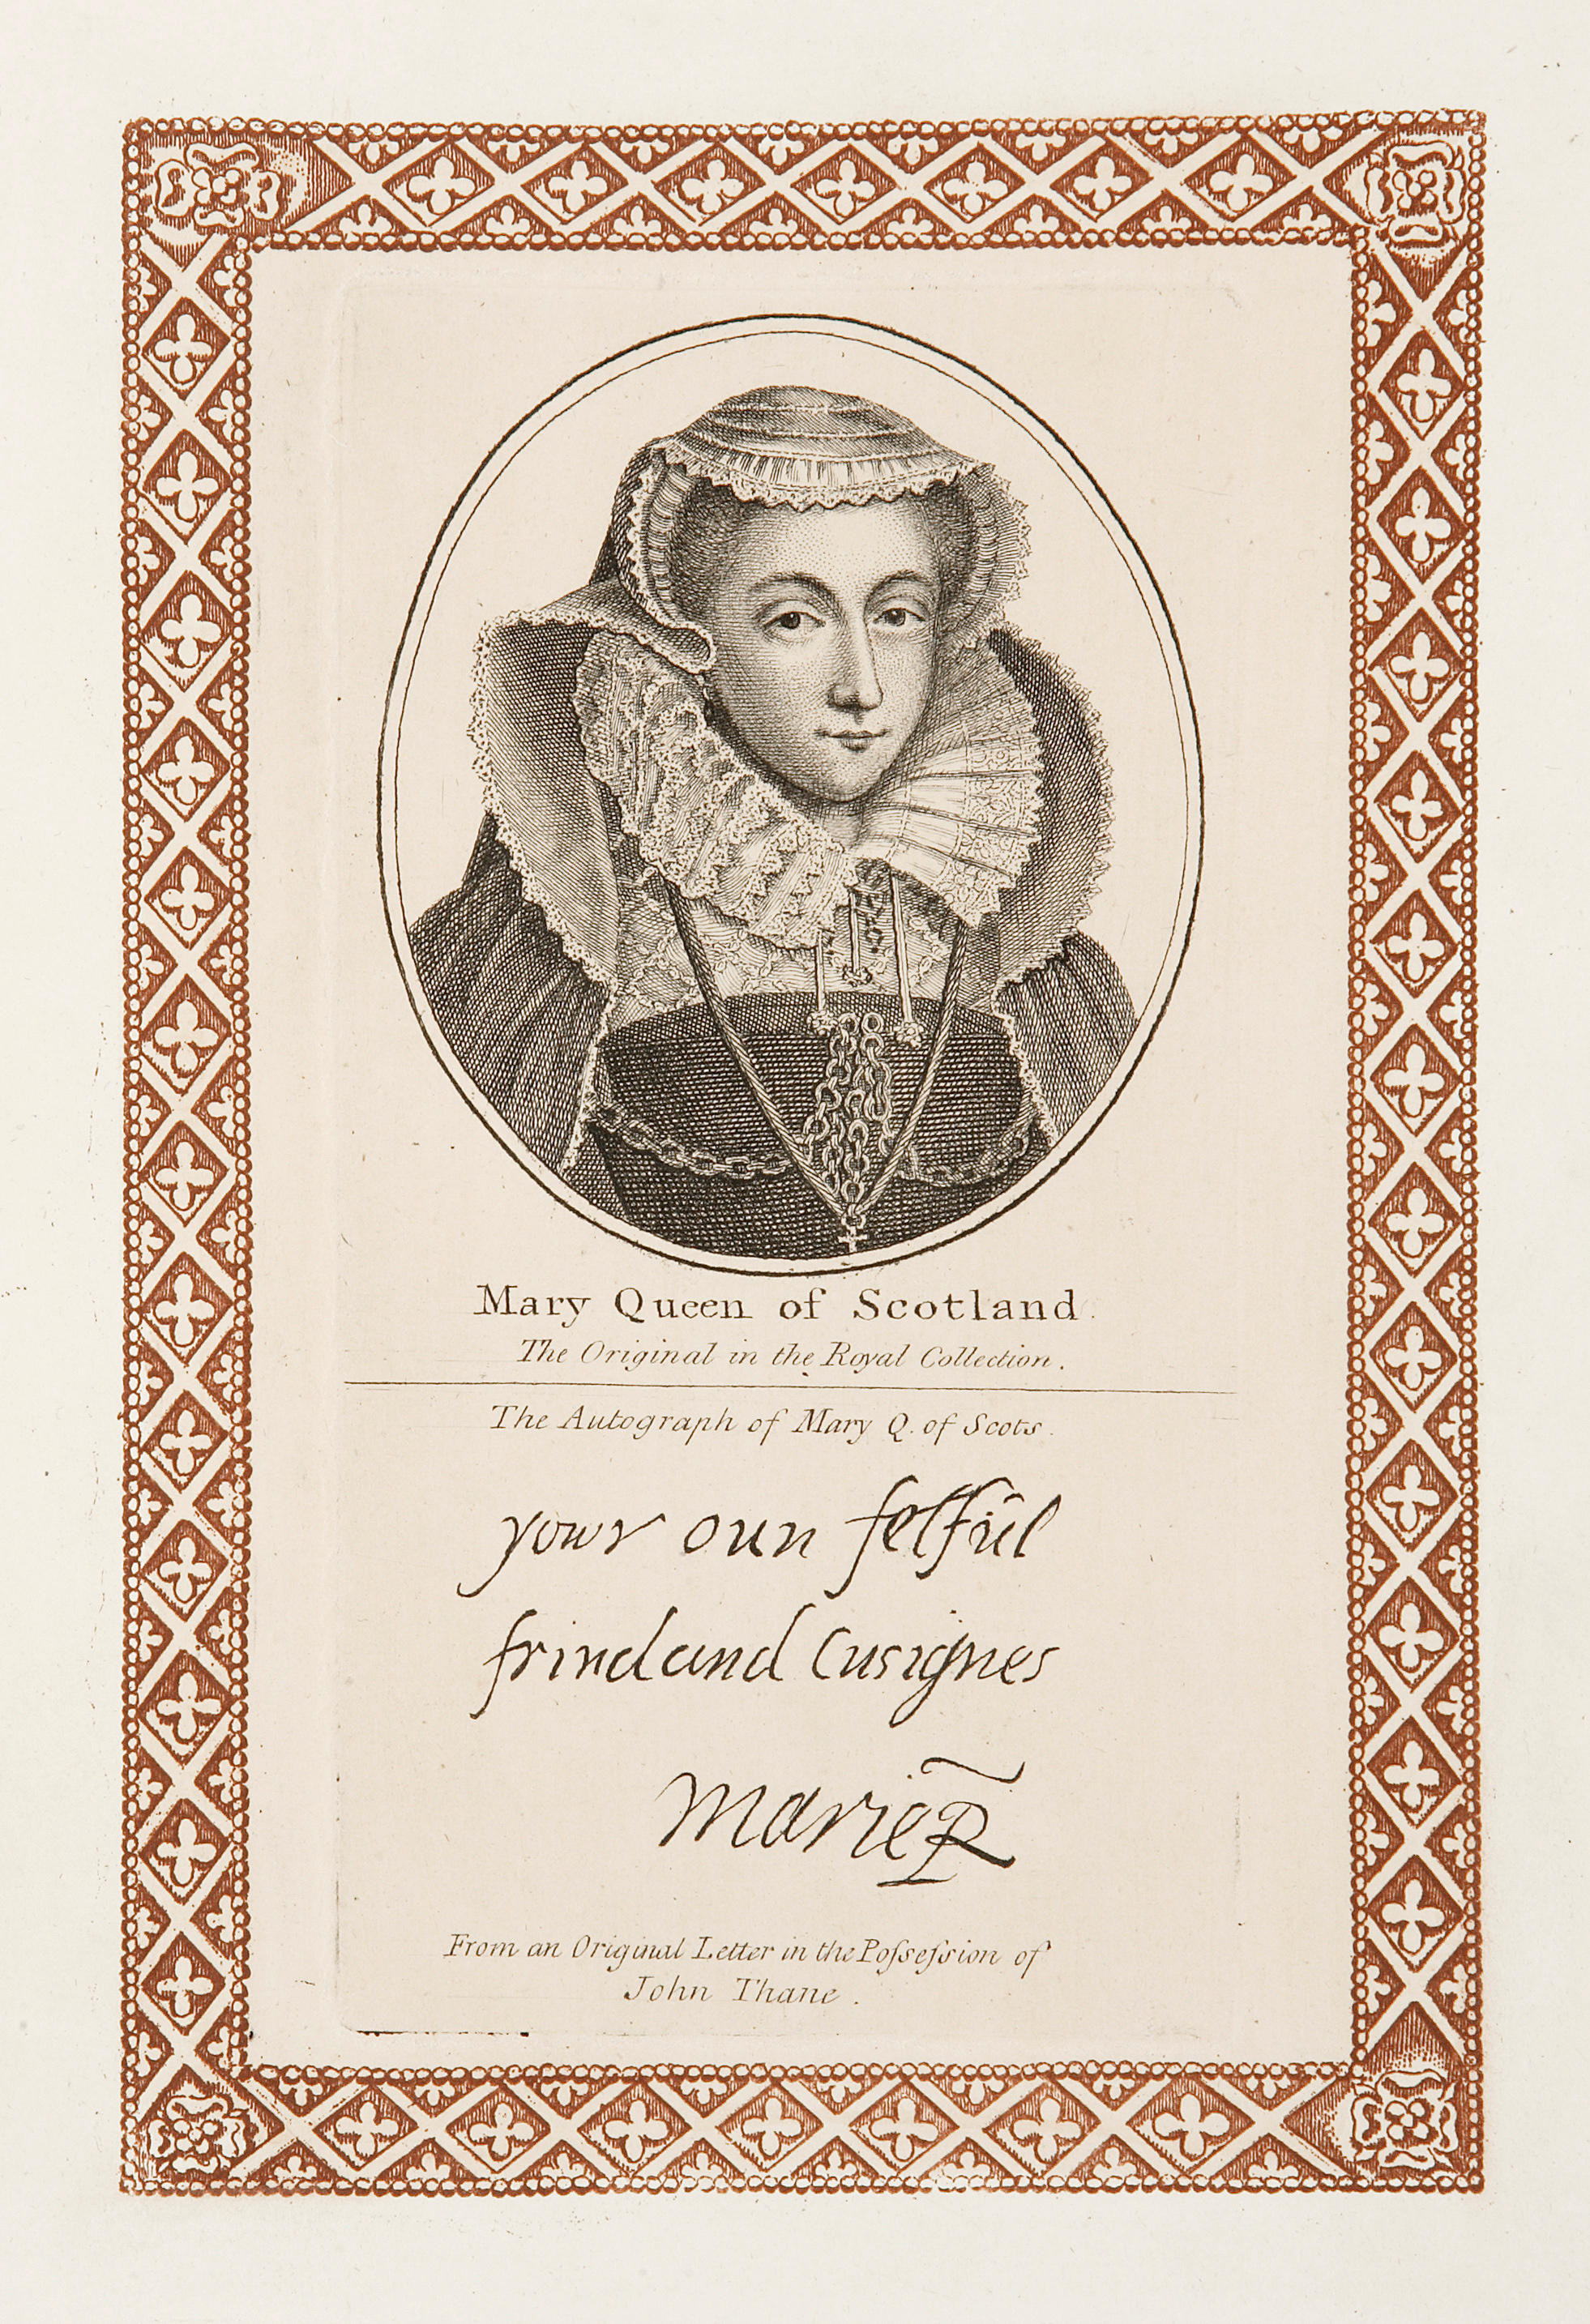 Mary Queen of Scotland.
The Original in the Royal Collection.
The Autograph of Mary Q. of Scots.
yowr oun felful
frind and Cusignes
Marie R
From an Original Letter in the Poſseſsion of
John Thane.